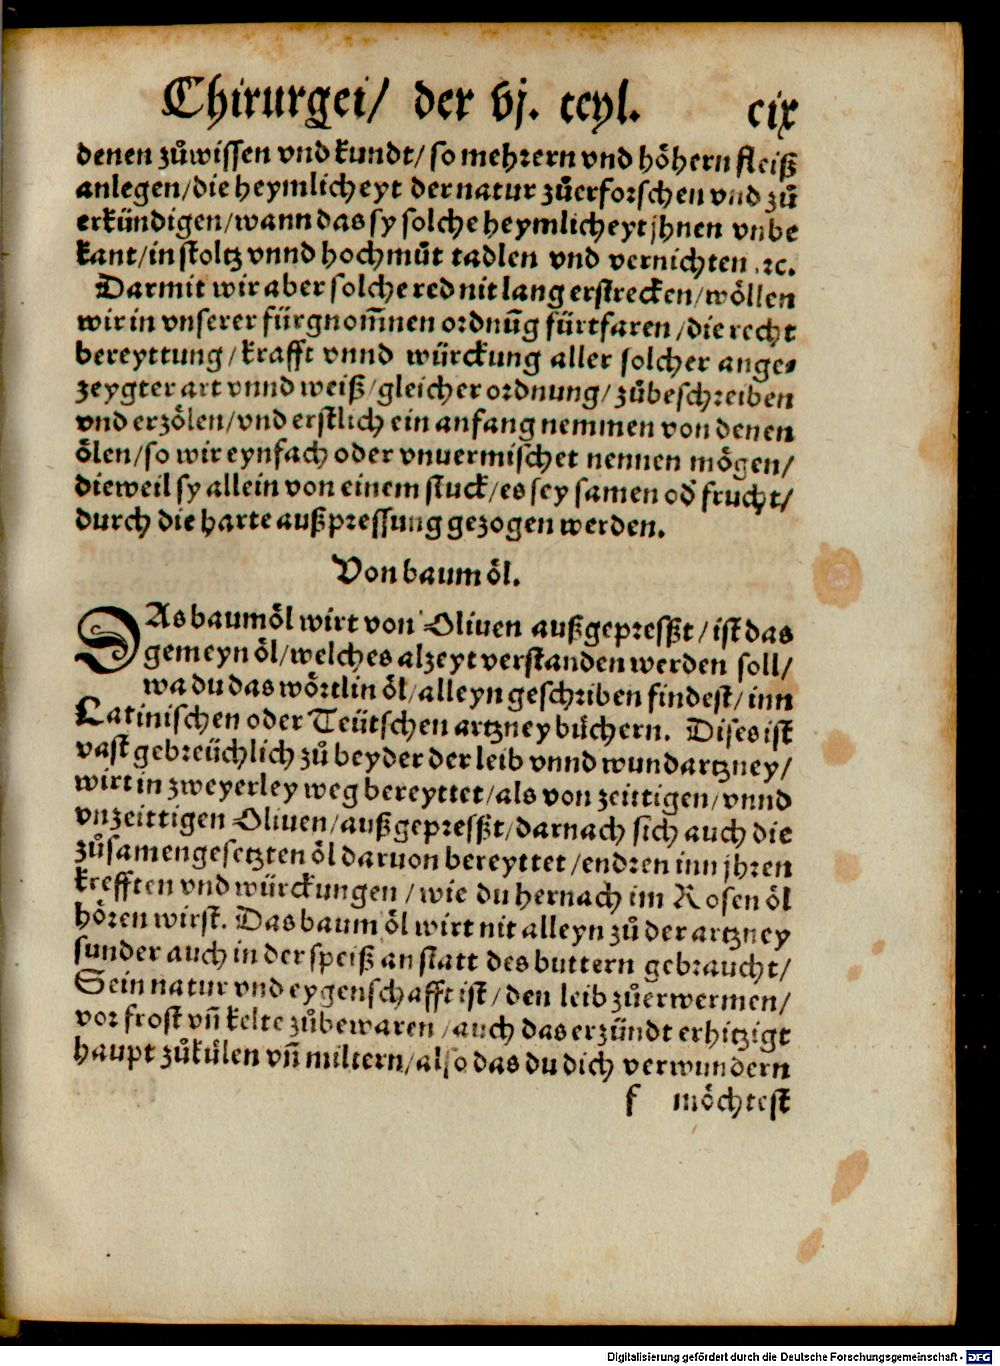 Chirurgei/ der vj. teyl. cix
denen zůwissen vnd kundt/ so mehrern vnd höhern fleiß
anlegen/die heymlicheyt der natur zůerforschen vnd zů
erkündigen/wann das sy solche heymlicheyt jhnen vnbe
kant/in stoltz vnnd hochmůt tadlen vnd vernichten ꝛc.
Darmit wir aber solche red nit lang erstrecken/wöllen
wir in vnserer fürgnom̃nen ordnũg fürtfaren/die recht
bereyttung/krafft vnnd würckung aller solcher ange⸗
zeygter art vnnd weiß/gleicher ordnung/zůbeschreiben
vnd erzölen/vnd erstlich ein anfang nemmen von denen
ölen/so wir eynfach oder vnuermischet nennen mögen/
dieweil sy allein von einem stuck/es sey samen od̓ frucht/
durch die harte außpressung gezogen werden.
Von baum öl.
DAs baumöl wirt von Oliuen außgepresßt/ist das
gemeyn öl/welches alzeyt verstanden werden soll/
wa du das wörtlin öl/alleyn geschriben findest/inn
Latinischen oder Teütschen artzney bůchern. Dises ist
vast gebreüchlich zů beyder der leib vnnd wundartzney/
wirt in zweyerley weg bereyttet/als von zeittigen/vnnd
vnzeittigen Oliuen/außgepresßt/darnach sich auch die
zůsamengesetzten öl daruon bereyttet/endren inn jhren
krefften vnd würckungen/wie du hernach im Rosen öl
hören wirst. Das baum öl wirt nit alleyn zů der artzney
sunder auch in der speiß an statt des buttern gebraucht/
Sein natur vnd eygenschafft ist/den leib zůerwermen/
vor frost vñ kelte zůbewaren/auch das erzündt erhitzigt
haupt zůkůlen vñ miltern/also das du dich verwundern
f möchtest
Digitalisierung gefördert durch die Deutsche Forschungsgemeinschaft - DFG